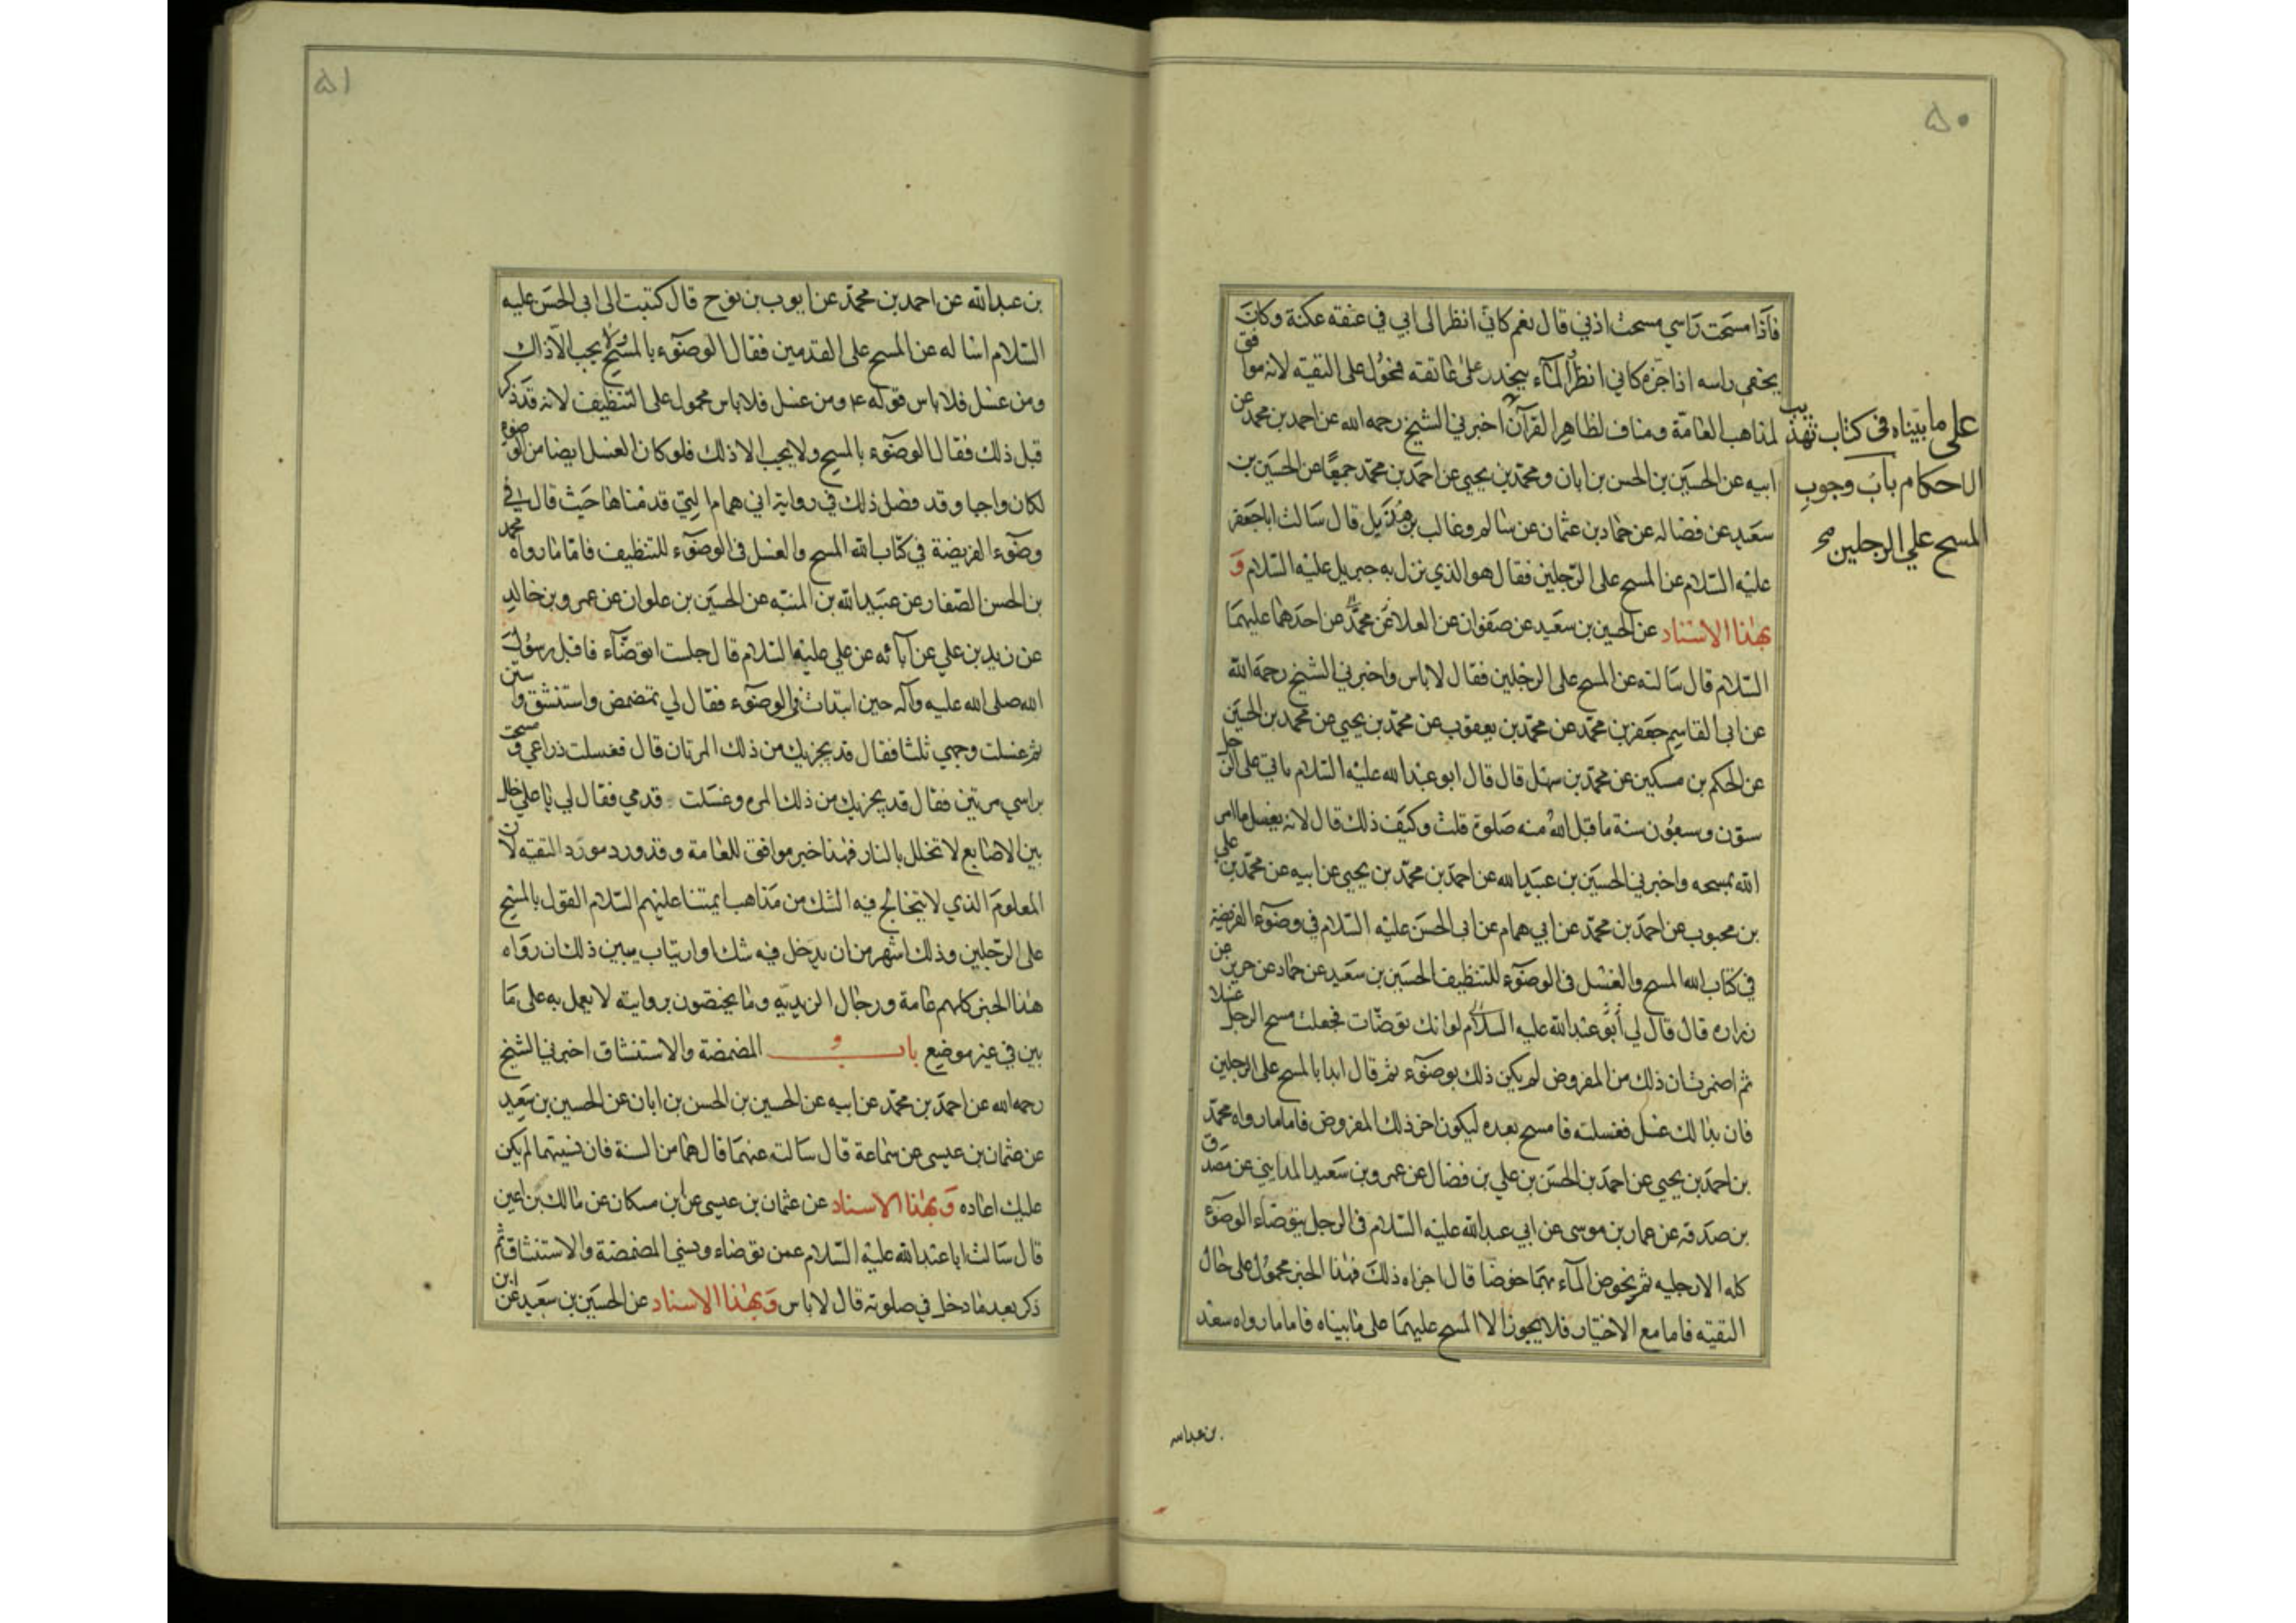 ۵۰
فاذا مسحت راسي مسحت اذني قال نعم كاني انظر الى ابي في عنقه عكنة وكان
يحفي راسه اذا جزه كاني انظر والماء ينحدر على عاتقه فمحول على التقية لانه موافق
لمذاهب العامة ومناف لظاهر القرآن اخبرني الشيخ رحمه الله عن احمد بن محمد عن
ابيه عن الحسين بن الحسن بن ابان ومحمد بن يحيى عن احمد بن محمد جميعا عن الحسين بن
سعيد عن فضاله عن حماد بن عثمان عن سالم وغالب بن هذيل قال سالت اباجعفر
عليه السلام عن المسح على الرجلين فقال هو الذي نزل به جبريل عليه السلام و
بهذا الاسناد عن الحسين بن سعيد عن صفوان عن العلا عن محمد عن احدهما عليهما
السلام قال سالته عن المسح على الرجلين فقال لاباس واخبرني الشيخ رحمه الله
عن ابي القاسم جعفر بن محمد عن محمد بن يعقوب عن محمد بن يحيى عن محمد بن الحسين
عن الحكم بن مسكين عن محمد بن سهل قال قال ابو عبد الله عليه السلام ياتي على الرجل
ستون وسبعون سنة ما قبل الله منه صلوة قلت وكيف ذلك قال لانه يغسل ما امر
الله بمسحه واخبرني الحسين بن عبيد الله عن احمد بن محمد بن يحيى عن ابيه عن محمد بن علي
بن محبوب عن احمد بن محمد عن ابي همام عن ابي الحسن عليه السلام في وضوء الفريضة
في كتاب الله المسح والغسل في الوضوء للتنظيف الحسين بن سعيد عن حماد عن حريز عن
زراره قال قال لي أبو عبد الله عليه السلام لو انك توضات فجعلت مسح الرجل غسلا
ثم اضمرت ان ذلك من المفروض لم يكن ذلك بوضوء ثم قال ابدا بالمسح على الرجلين
فان بدا لك غسل فغسلته فامسح بعده ليكون اخر ذلك المفروض فاما ما رواه محمد
بن احمد بن يحيى عن احمد بن الحسن بن علي بن فضال عن عمرو بن سعيد المدايني عن مصدق
بن صدقه عن عمار بن موسى عن ابي عبد الله عليه السلام في الرجل يتوضاء الوضوء
كله الا رجليه ثم يخوض الماء بهما خوضا قال اجزاه ذلك فهذا الخبر محمول على حال
التقيه فاما مع الاختيار فلا يجوز الا المسح عليهما على ما بيناه فاما ما رواه سعد
على ما بيناه في كتاب تهذيب
الاحكام باب وجوب
المسح علي الرجلين صح
بن عبدالله
۵۱
بن عبد الله عن احمد بن محمد عن ايوب بن نوح قال كتبت الى ابي الحسن عليه
السلام اساله عن المسح على القدمين فقال الوضوء بالمسح ولا يجب الا ذاك
ومن غسل فلا باس قوله ع ومن غسل فلا باس محمول على التنظيف لانه قد ذكر
قبل ذلك فقال الوضوء بالمسح ولا يجب الا ذلك فلو كان الغسل ايضا من الوضوء
لكان واجبا وقد فضل ذلك في رواية ابي همام التي قدمناها حيث قال في
وضوء الفريضة في كتاب الله المسح والغسل في الوضوء للتنظيف فاما ما رواه محمد
بن الحسن الصفار عن عبيد الله بن المنبه عن الحسين بن علوان عن عمرو بن خالد
عن زيد بن علي عن آبائه عن علي عليه السلام قال جلست اتوضاء فاقبل رسول
الله صلى الله عليه وآله حين ابتدات في الوضوء فقال لي تمضمض واستنشق واستن
ثم غسلت وجهي ثلثا فقال قد يجزيك من ذلك المرتان قال فغسلت ذراعي ومسحت
براسي مرتين فقال قد يجزيك من ذلك المره وغسلت قدمي فقال لي يا علي خلل
بين الاصابع لا تخلل بالنار فهذا خبر موافق للعامة وقد ورد مورد التقيه لان
المعلوم الذي لا يتخالج فيه الشك من مذاهب ايمتنا عليهم السلام القول بالمسح
على الرجلين وذلك اشهر من ان يدخل فيه شك او ارتياب يبين ذلك ان رواه
هذا الخبر كلهم عامة ورجال الزيديه وما يختصون بروايته لا يعمل به على ما
بين في غير موضع باب و المضمضة والاستنشاق اخبرني الشيخ
رحمه الله عن احمد بن محمد عن ابيه عن الحسين بن الحسن بن ابان عن الحسين بن سعيد
عن عثمان بن عيسى عن سماعة قال سالته عنهما قال هما من السنة فان نسيتهما لم يكن
عليك اعاده وبهذا الاسناد عن عثمان بن عيسى عن ابن مسكان عن مالك بن اعين
قال سالت ابا عبد الله عليه السلام عمن توضاء ونسي المضمضة والاستنشاق ثم
ذكر بعد ما دخل في صلوته قال لا باس وبهذا الاسناد عن الحسين بن سعيد عن ابن